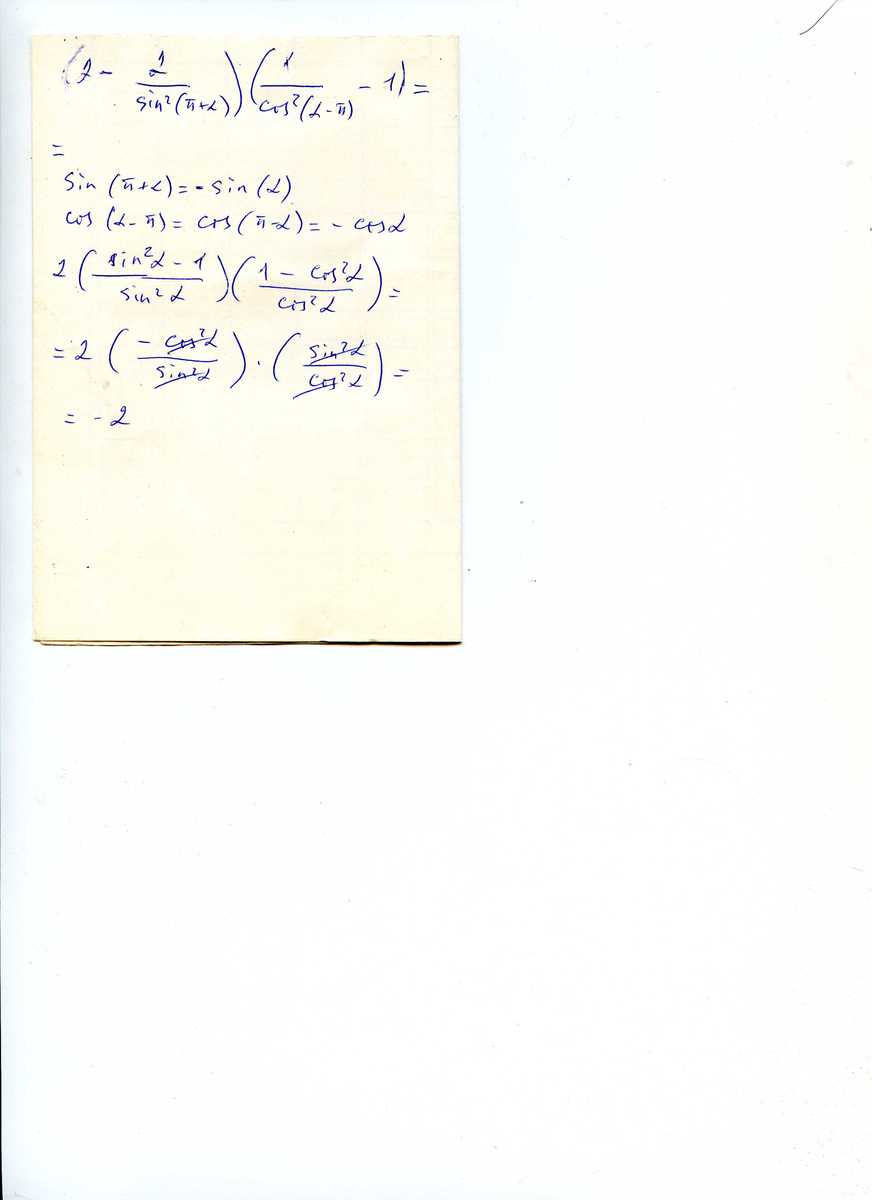 (2 - 2/sin²(π+α))(1/cos²(α-π) - 1) =
=
sin(π+α) = - sin(α)
cos(α-π) = cos(π-α) = - cosα
2((sin²α - 1)/sin²α)((1 - cos²α)/cos²α) =
= 2(- cos²α/sin²α)·(sin²α/cos²α) =
= - 2